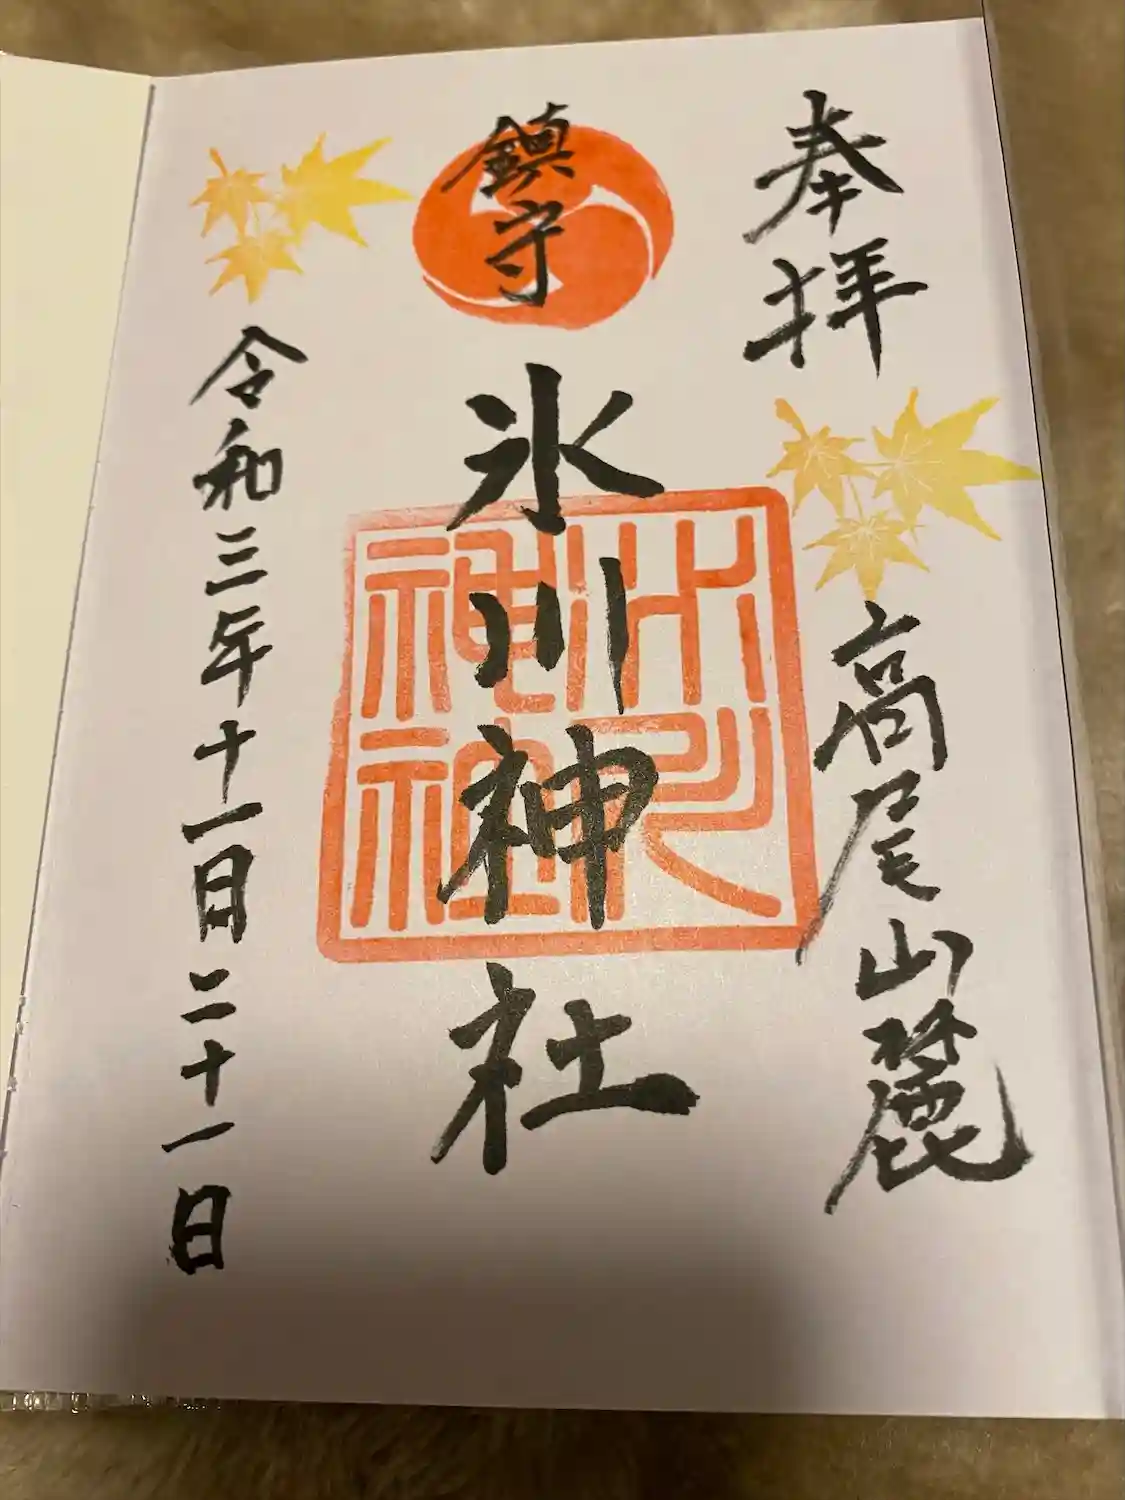 奉拝
高尾山麓
鎮守
氷川神社
令和三年十一月二十一日